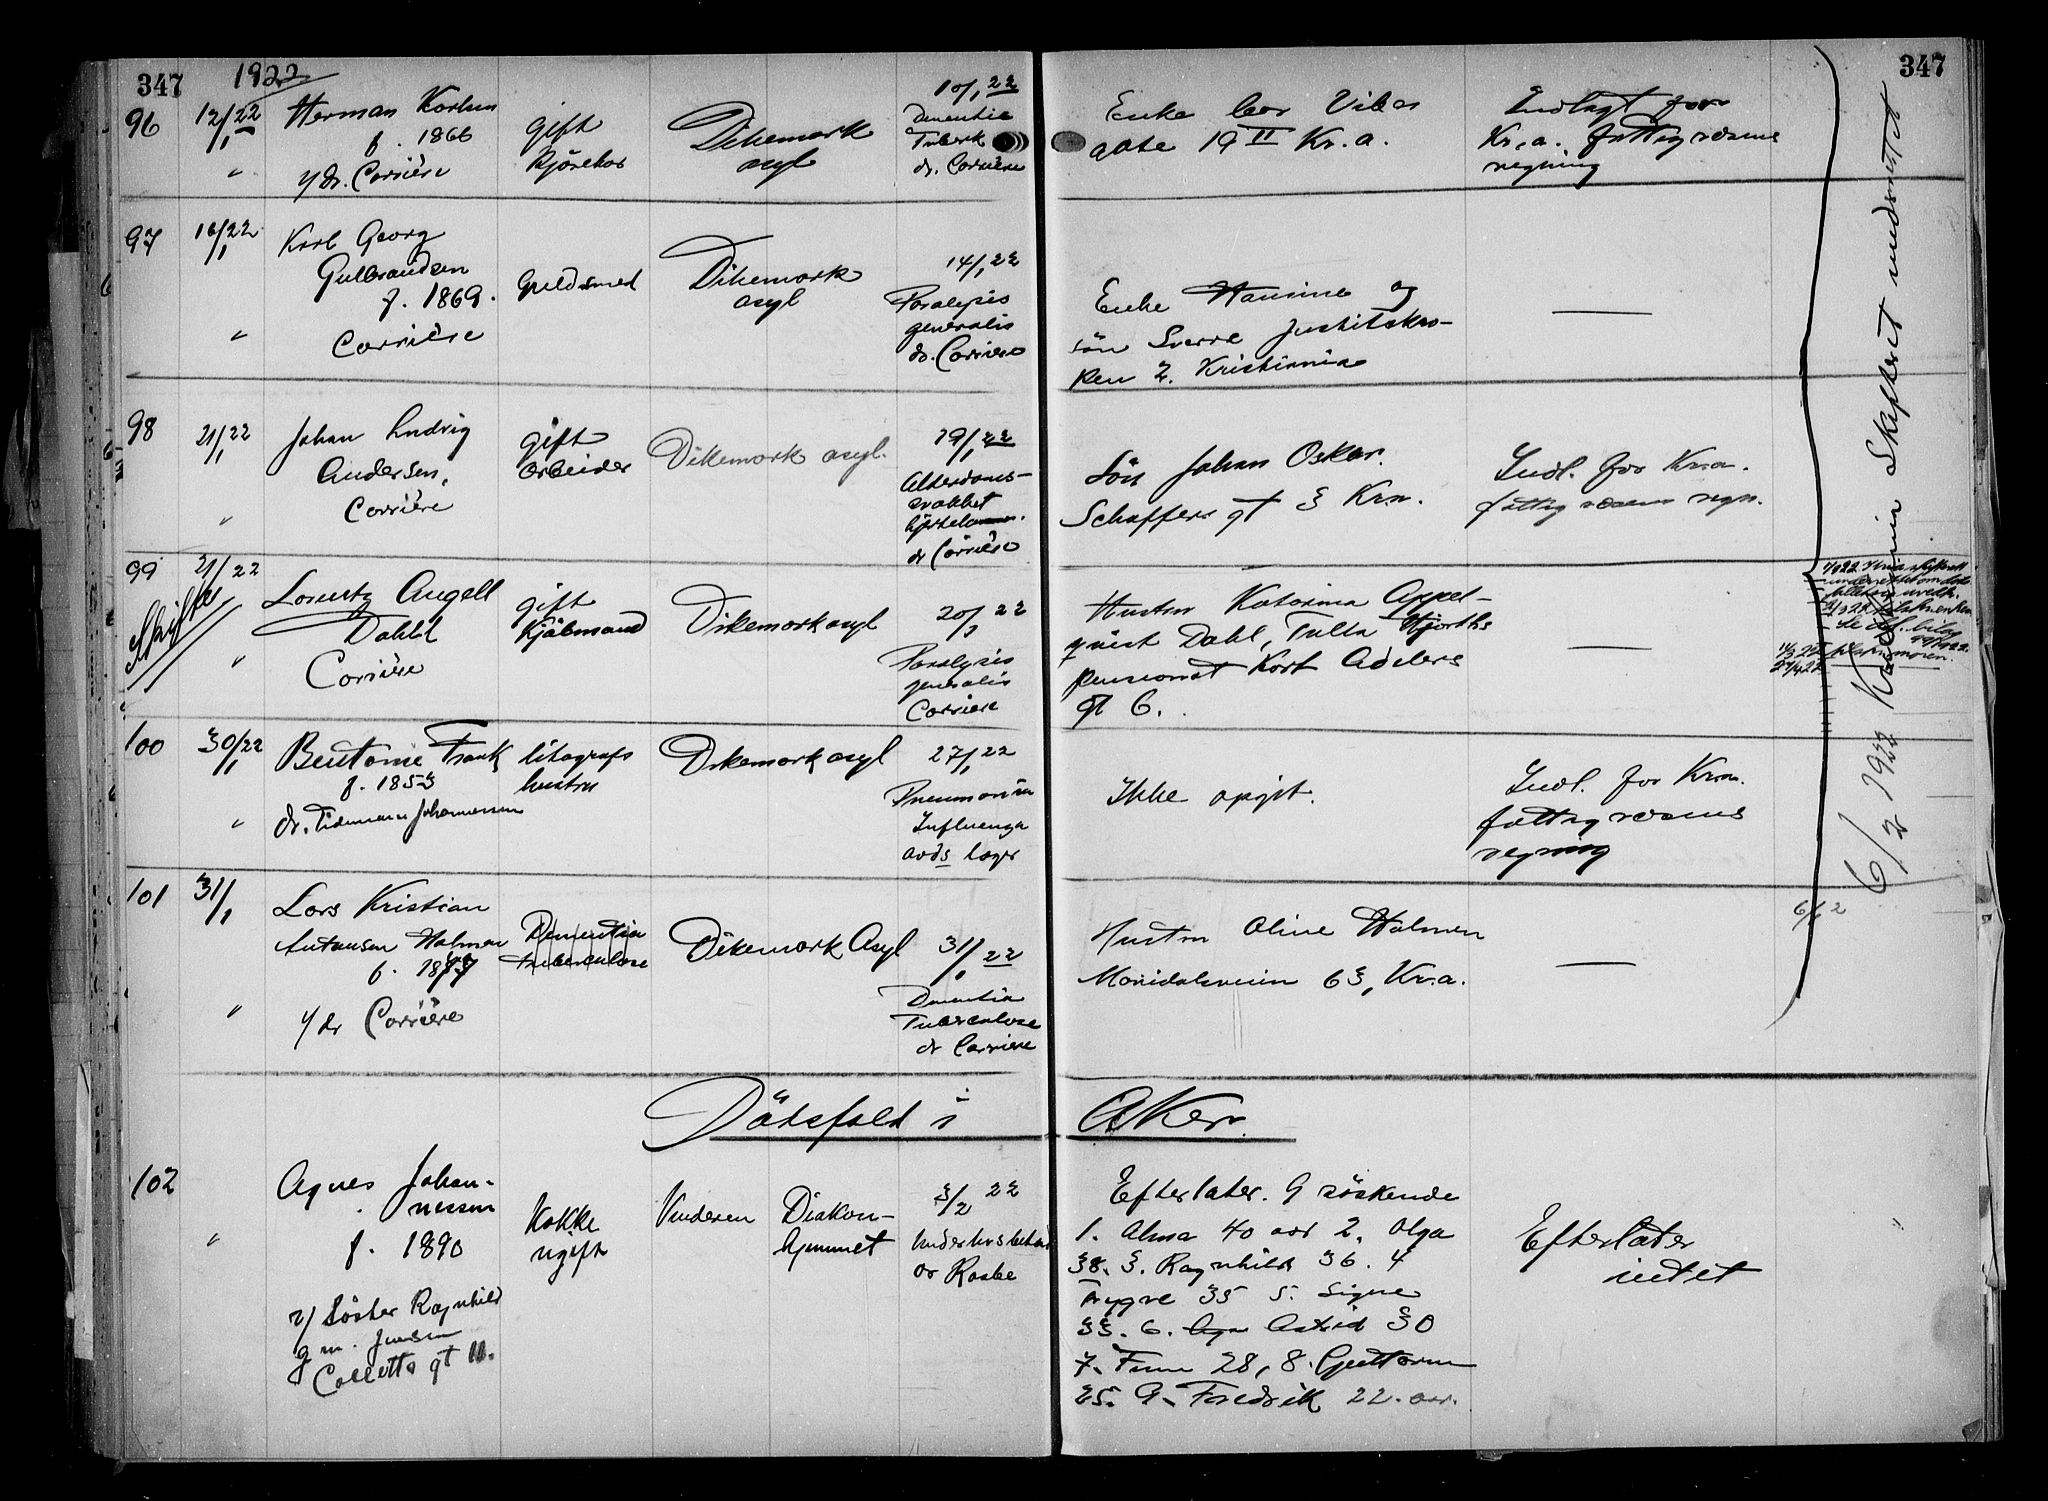 347 1922 347
96 12/1 22 Herman Karlsen
f. 1866
v/ dr. Carrière
gift
kjörekar
Dikemark
asyl
10/1 22
Dementia
Tuberk
dr. Carrière
Enke bor Vibes
gate 19 II Kr.a.
Indlagt for
Kr.a. fattigvæsens
regning
97 16/1 22 Karl Georg
Gulbrandsen
f. 1869.
Carrière
Guldsmed
Dikemark
asyl
14/1 22
Paralysis
generalis
dr. Carriere
Enke Hansine og
sön Sverre
2. Kristiania
98 21/1 22 Johan Ludvig
Andersen,
Carrière
gift
arbeider
Dikemark asyl.
19/1 22
Alderdoms-
svakhet
dr Carrière
Sön Johan Oskar.
Schaffers gt 3 Kra.
Indl. for Kr.a.
fattigvæsens regn.
99 21/1 22 Lorentz Angell
Skiftes
Dahl
Carrière
gift
Kjöbmand
Dikemark asyl
20/1 22
Paralysis
generalis
Carriere
Hustru Katarina Appel-
qvist Dahl, Tulla Hjorths
pensionat Kort Adelers
gt 6.
100 30/1 22 Bentonie Frank
f. 1853
dr. Tidemann Johannessen
litografs
hustru
Dikemark asyl
27/1 22
Pneumonia
Influenza
avds læge
Ikke opgit.
Indl. for Kr.a.
fattigvæsens
regning
101 31/1 Lars Kristian
Antonsen Holmen
v/ dr Carrière
Dementia
tuberculose
Dikemark Asyl
31/1 22
Dementia
Tuberculose
dr Carriere
Hustru Oline Holmen
Maridalsveien 63, Kr.a.
6/2 1922 Skifteret underrettet
Dödsfald i Aker.
102 Agnes Johan-
nessen
f. 1890
v/ Söster Ragnhild
g. m. Jensen
Colletts gt 11.
Kokke
ugift
Vinderen Diakon-
hjemmet
3/2 22
Efterlater. 9 söskende
1. Alma 40 aar 2. Olga
38. 3. Ragnhild 36. 4
Trygve 35 5. Signe
33. 6. Astrid 30
7. Finn 28, 8. Guttorm
25. 9. Fredrik 22. aar.
Efterlater
intet